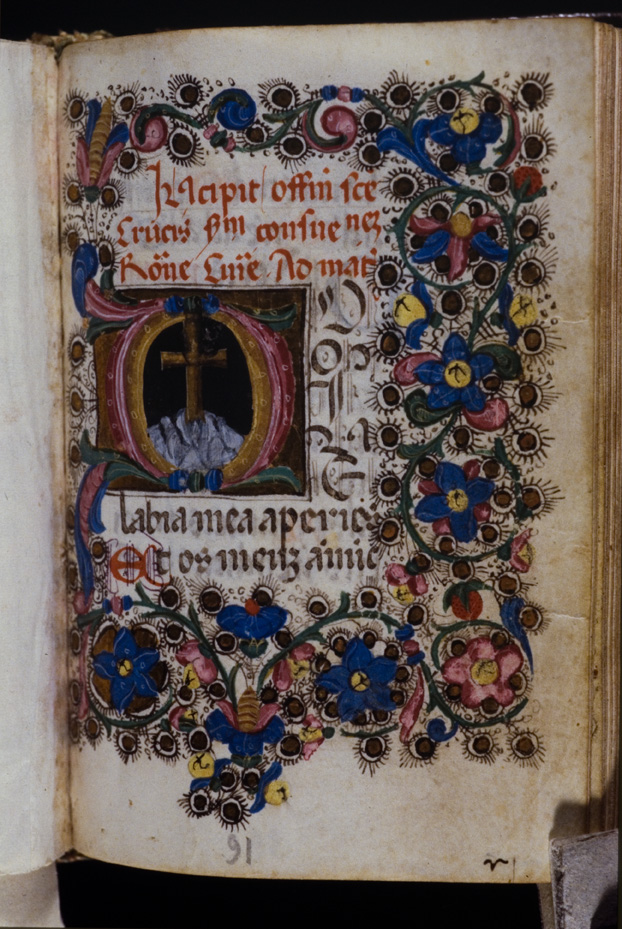 Incipit offiu sce
Crucis sm consue nez
Rõne Curie Ad mat
D
labia mea aperies
Et os meuz anuc
91